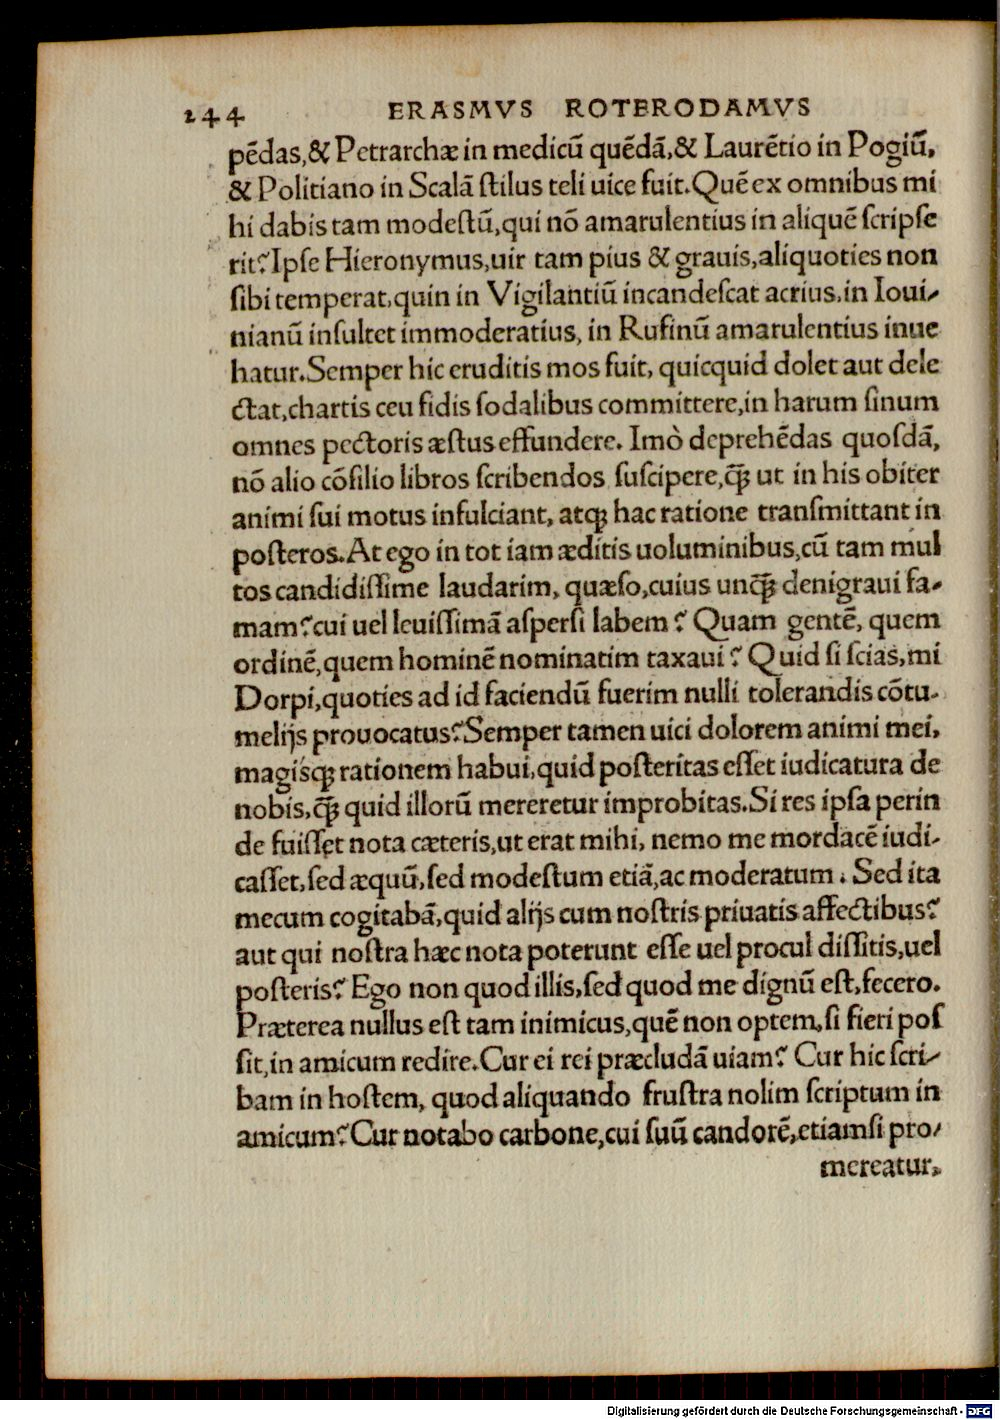 244 ERASMVS ROTERODAMVS
pēdas,& Petrarchæ in medicū quēdā,& Laurētio in Pogiū,
& Politiano in Scalā ſtilus teli uice fuit.Quē ex omnibus mi
hi dabis tam modeſtū,qui nō amarulentius in aliquē ſcripſe
rit? Ipſe Hieronymus,uir tam pius & grauis,aliquoties non
ſibi temperat,quin in Vigilantiū incandeſcat acrius,in Ioui-
nianū inſultet immoderatius, in Rufinū amarulentius inue
hatur.Semper hic eruditis mos fuit, quicquid dolet aut dele
ctat,chartis ceu fidis ſodalibus committere,in harum ſinum
omnes pectoris æſtus effundere. Imò deprehēdas quoſdā,
nō alio cōſilio libros ſcribendos ſuſcipere,ꝗ̃ ut in his obiter
animi ſui motus infulciant, atqꝫ hac ratione tranſmittant in
poſteros.At ego in tot iam æditis uoluminibus,cū tam mul
tos candidiſſime laudarim, quæſo,cuius unꝗ̃ denigraui fa-
mam? cui uel leuiſſimā aſperſi labem? Quam gentē, quem
ordinē,quem hominē nominatim taxaui? Quid ſi ſcias,mi
Dorpi,quoties ad id faciendū fuerim nulli tolerandis cōtu-
melijs prouocatus? Semper tamen uici dolorem animi mei,
magisqꝫ rationem habui,quid poſteritas eſſet iudicatura de
nobis,ꝗ̃ quid illorū mereretur improbitas.Si res ipſa perin
de fuiſſet nota cæteris,ut erat mihi, nemo me mordacē iudi-
caſſet,ſed æquū,ſed modeſtum etiā,ac moderatum. Sed ita
mecum cogitabā,quid alijs cum noſtris priuatis affectibus?
aut qui noſtra hæc nota poterunt eſſe uel procul diſſitis,uel
poſteris? Ego non quod illis,ſed quod me dignū eſt,fecero.
Præterea nullus eſt tam inimicus,quē non optem,ſi fieri poſ
ſit,in amicum redire.Cur ei rei præcludā uiam? Cur hic ſcri-
bam in hoſtem, quod aliquando fruſtra nolim ſcriptum in
amicum? Cur notabo carbone,cui ſuū candorē,etiamſi pro-
mereatur,
Digitalisierung gefördert durch die Deutsche Forschungsgemeinschaft - DFG